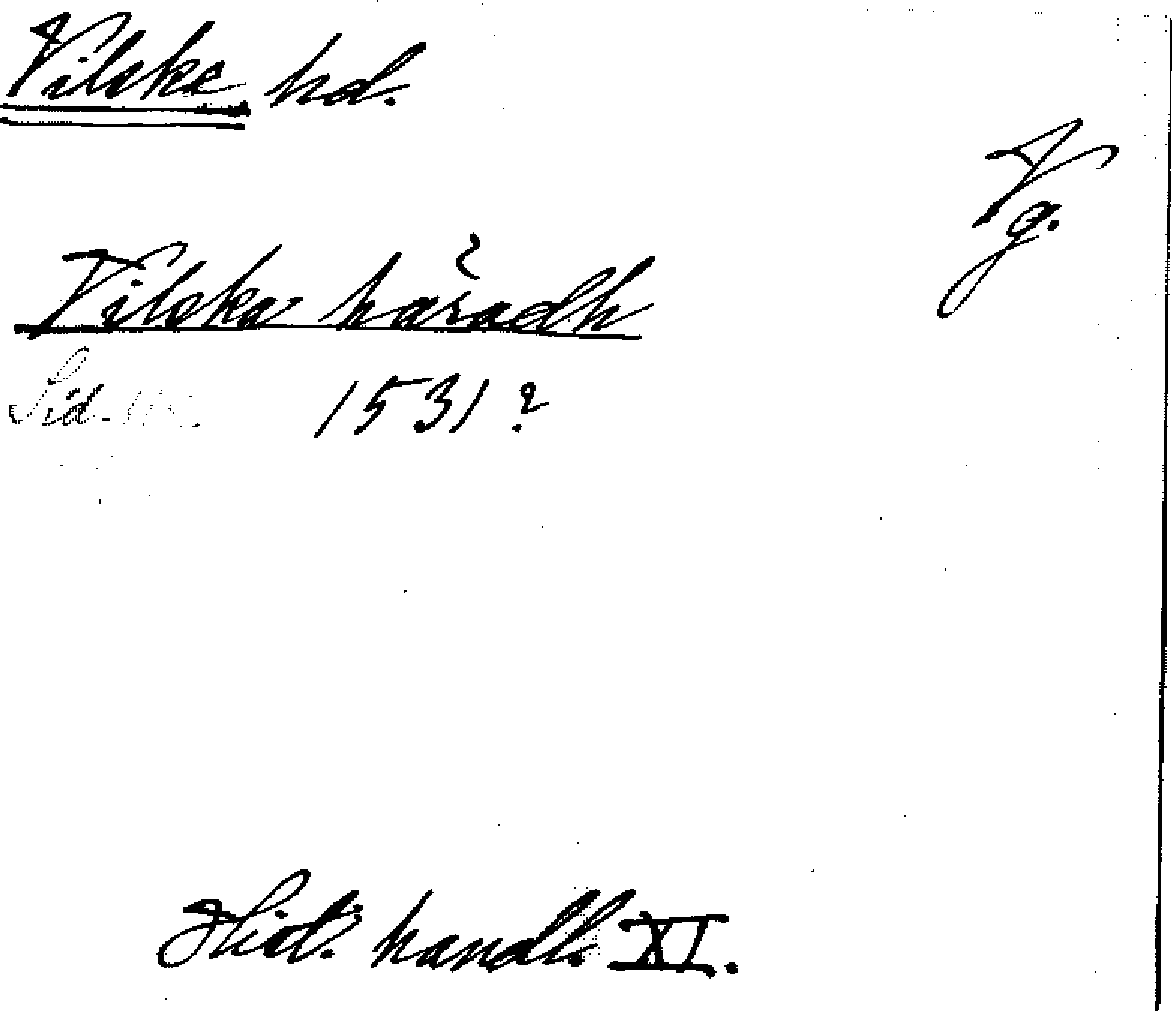 Vilske hd.
Vg.
Vilska häradh
Sid.
1531?
Hist. handl. XI.